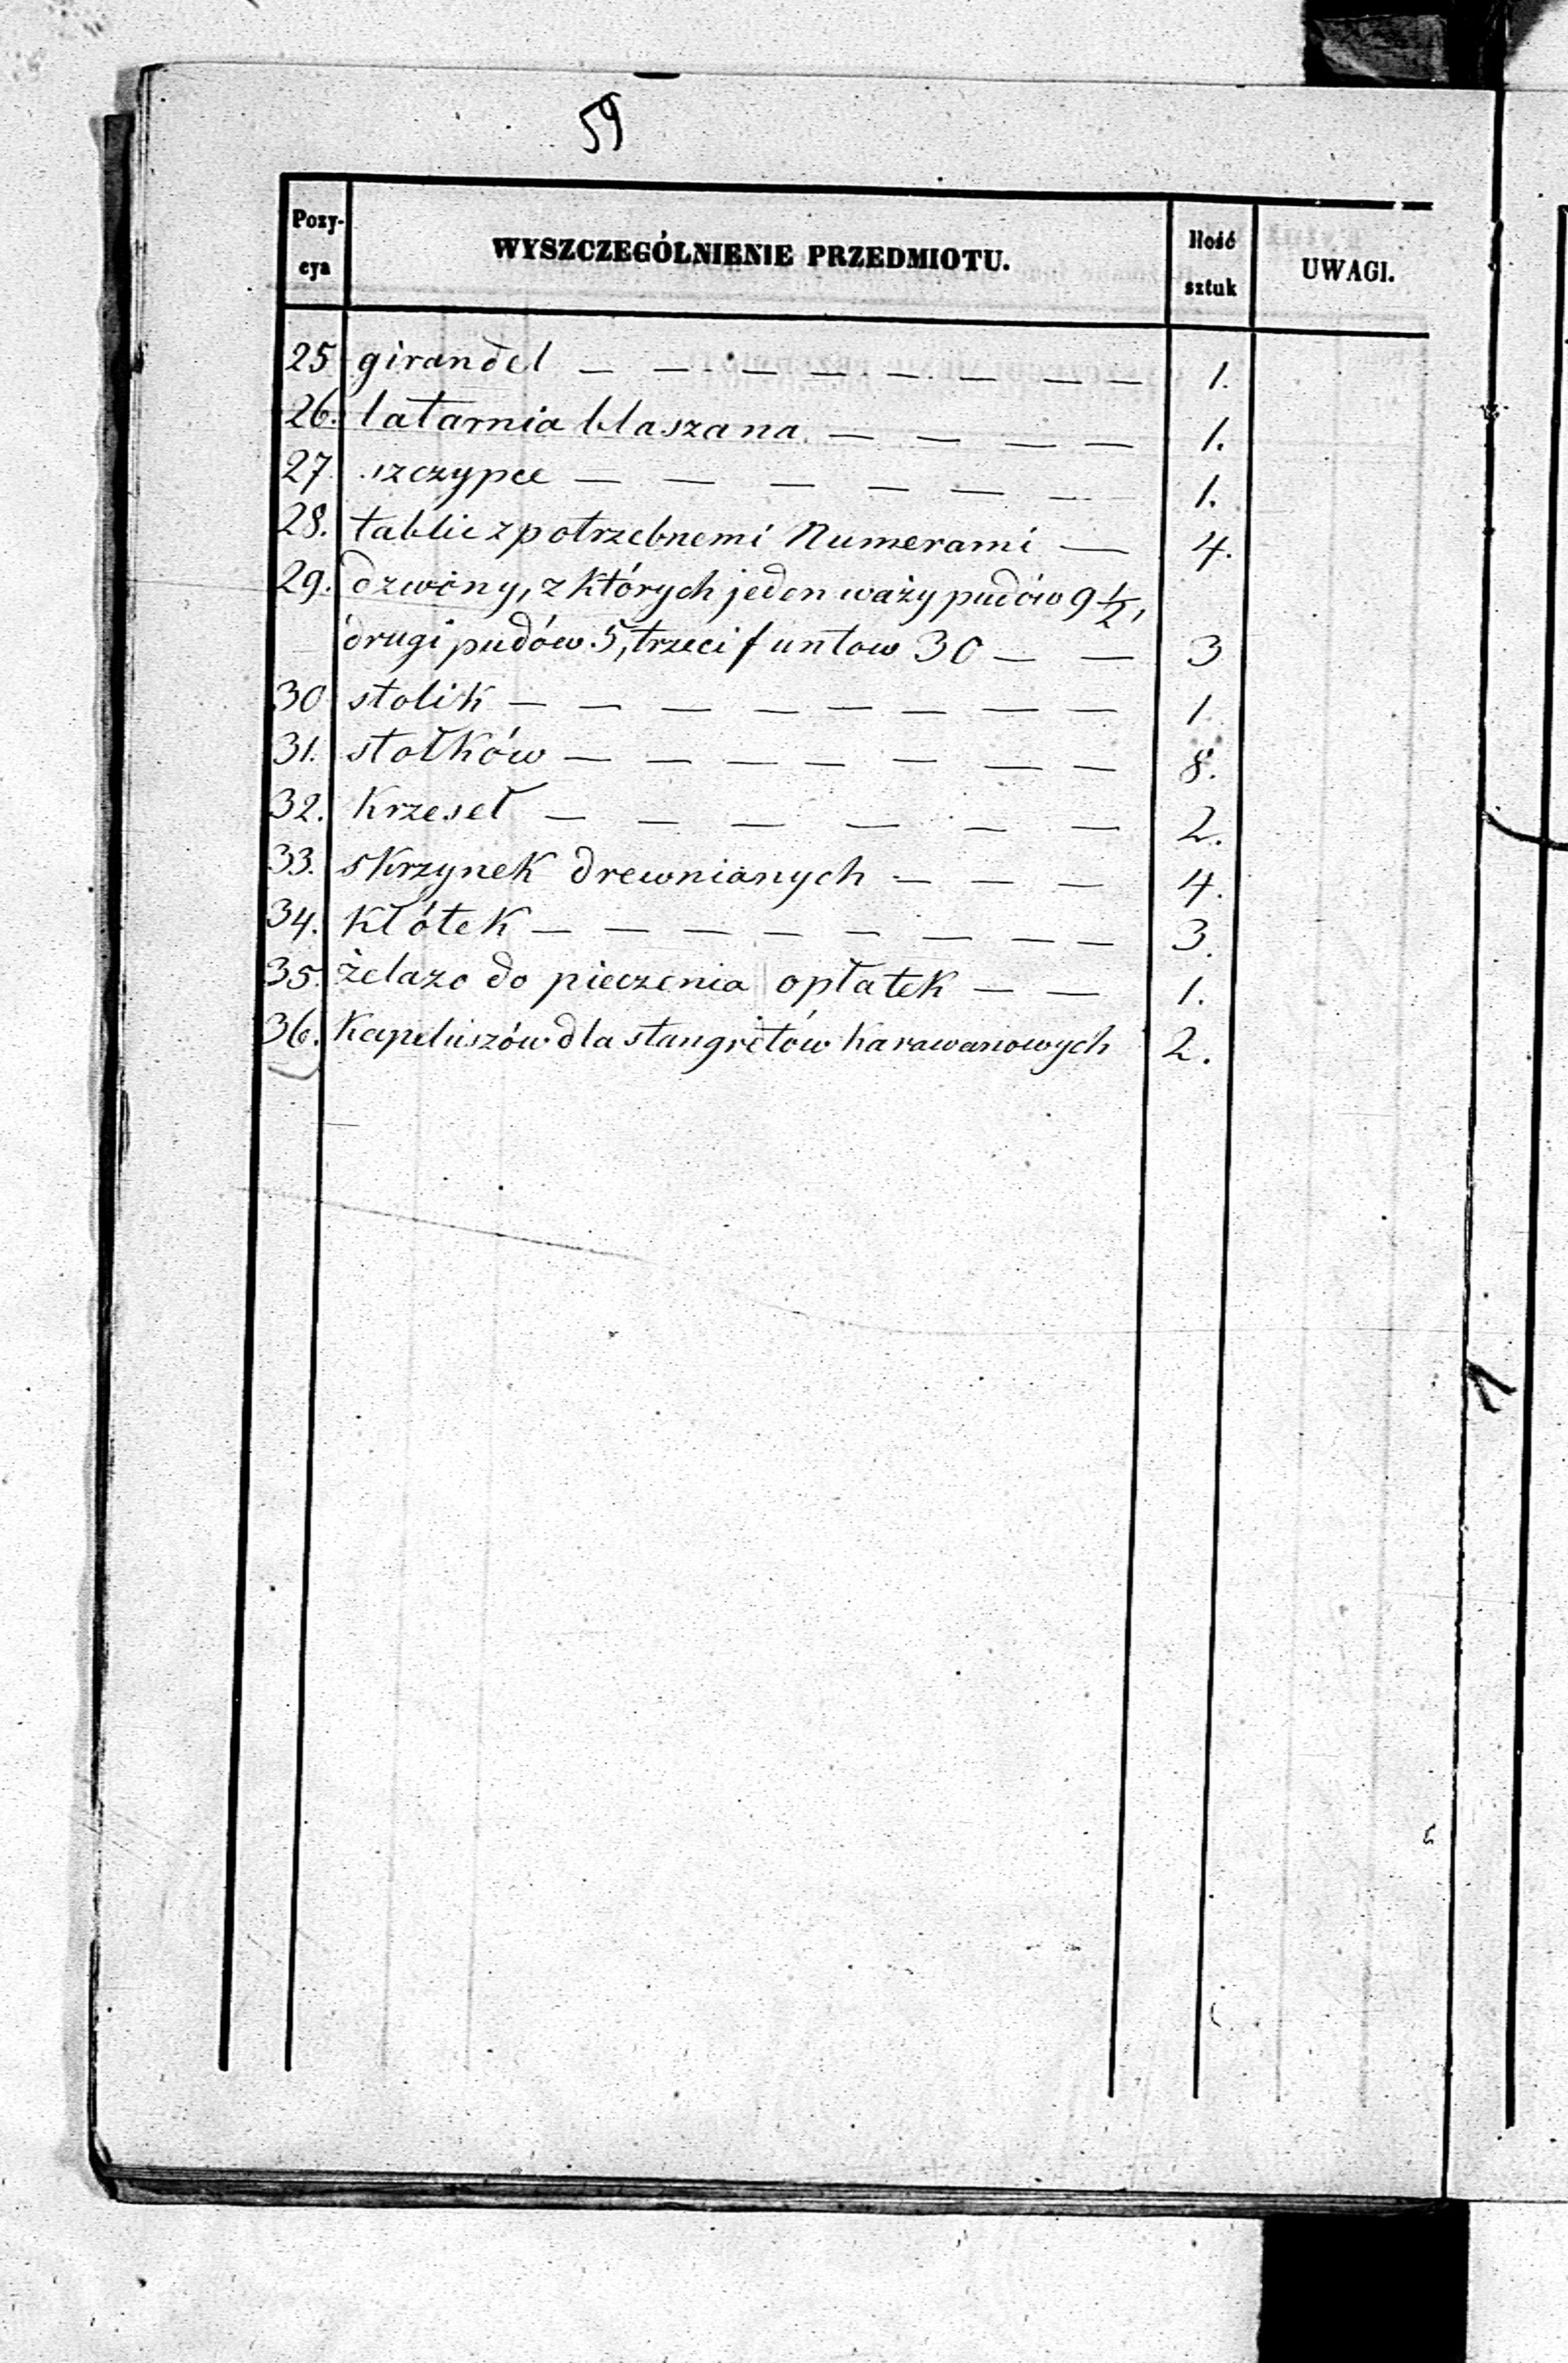 59
Pozy-
cya
WYSZCZEGÓLNIENIE PRZEDMIOTU.
Ilość
sztuk
UWAGI.
25 girandel — — — — — — — — 1.
26. latarnia blaszana — — — — 1.
27 szczypce — — — — — — 1.
28. tablic z potrzebnemi Numerami — 4.
29. dzwony, z których jeden waży pudów 9 1/2,
drugi pudów 5, trzeci funtow 30 — — 3
30 stolik — — — — — — — — 1
31. stołków — — — — — — — 8.
32. Krzeseł — — — — — — 2.
33. skrzynek drewnianych — — — 4.
34. kłótek — — — — — — — — 3.
35. żelazo do pieczenia opłatek — — 1.
36. Kapeluszów dla stangretów karawanowych 2.